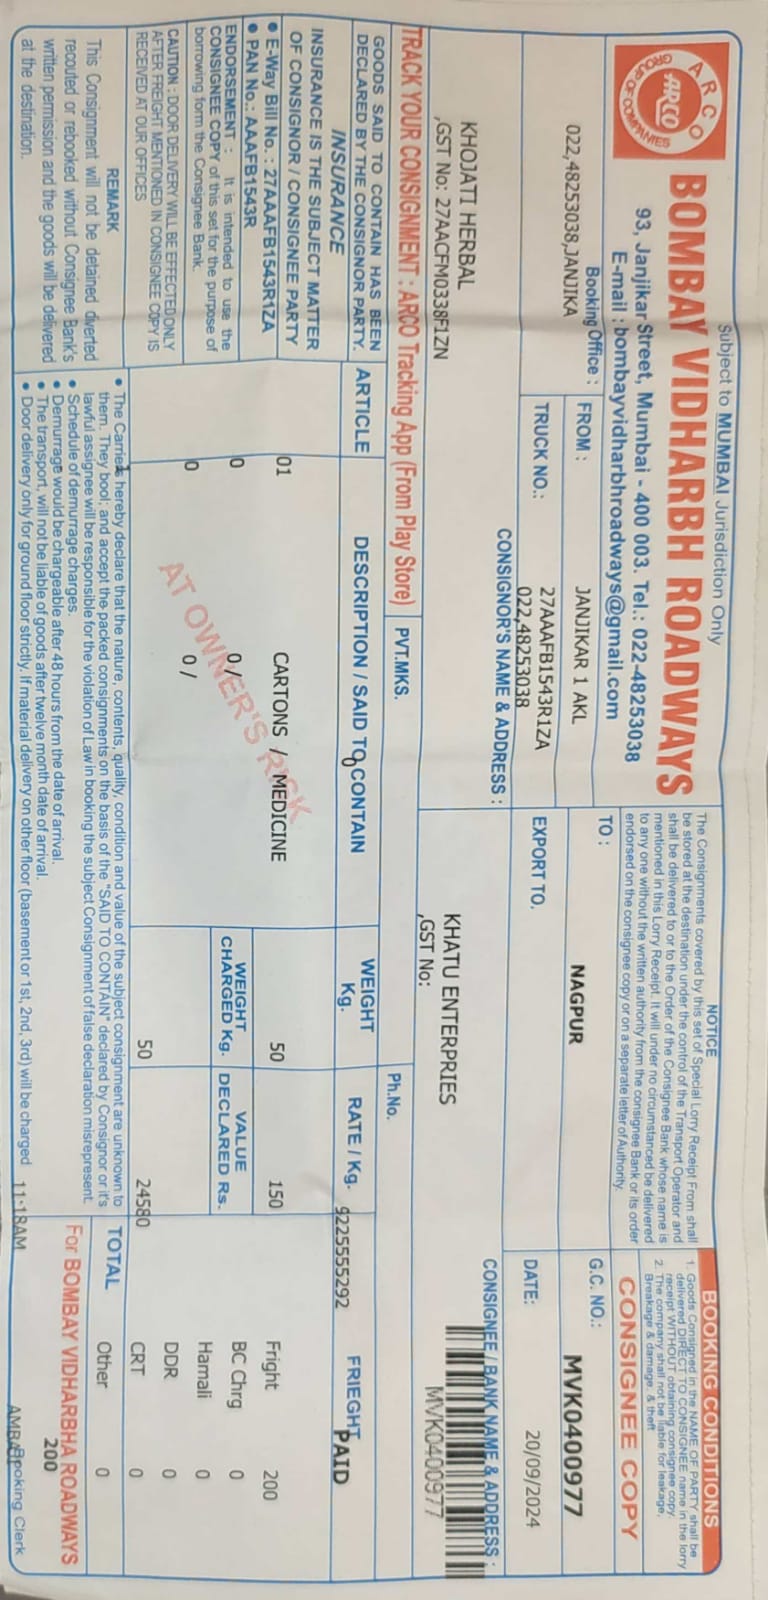 Subject to MUMBAI Jurisdiction Only
ARCO
GROUP OF COMPANIES
ARCO
BOMBAY VIDHARBH ROADWAYS
93, Janjikar Street, Mumbai - 400 003. Tel.: 022-48253038
E-mail : bombayvidharbhroadways@gmail.com
NOTICE
The Consignments covered by this set of Special Lorry Receipt From shall
be stored at the destination under the control of the Transport Operator and
shall be delivered to or to the Order of the Consignee Bank whose name is
mentioned in this Lorry Receipt. It will under no circumstanced be delivered
to any one without the written authority from the consignee Bank or its order
endorsed on the consignee copy or on a separate letter of Authority.
BOOKING CONDITIONS
1. Goods Consigned in the NAME OF PARTY shall be
delivered DIRECT TO CONSIGNEE name in the lorry
receipt WITHOUT obtaining consignee copy.
2. The company shall not be liable for leakage,
Breakage & damage. & theft
CONSIGNEE COPY
Booking Office :
022,48253038,JANJIKA
FROM :
JANJIKAR 1 AKL
TO :
NAGPUR
G.C. NO.:
MVK0400977
TRUCK NO.:
27AAAFB1543R1ZA
022,48253038
EXPORT TO.
DATE:
20/09/2024
CONSIGNOR'S NAME & ADDRESS :
KHOJATI HERBAL
,GST No: 27AACFM0338F1ZN
CONSIGNEE / BANK NAME & ADDRESS :
KHATU ENTERPRIES
,GST No:
MVK0400977
TRACK YOUR CONSIGNMENT : ARCO Tracking App (From Play Store)
PVT.MKS.
Ph.No.
9225555292
GOODS SAID TO CONTAIN HAS BEEN
DECLARED BY THE CONSIGNOR PARTY.
INSURANCE
INSURANCE IS THE SUBJECT MATTER
OF CONSIGNOR / CONSIGNEE PARTY
• E-Way Bill No. : 27AAAFB1543R1ZA
• PAN No.: AAAFB1543R
ENDORSEMENT : It is intended to use the
CONSIGNEE COPY of this set for the purpose of
borrowing form the Consignee Bank.
CAUTION : DOOR DELIVERY WILL BE EFFECTED ONLY
AFTER FREIGHT MENTIONED IN CONSIGNEE COPY IS
RECEIVED AT OUR OFFICES
ARTICLE
DESCRIPTION / SAID TO CONTAIN
WEIGHT
Kg.
RATE / Kg.
FRIEGHT
PAID
0
01
CARTONS / MEDICINE
50
150
Fright 200
0
0 /
WEIGHT
CHARGED Kg.
VALUE
DECLARED Rs.
BC Chrg 0
0
0 /
Hamali 0
DDR 0
50
24580
CRT 0
Other 0
AT OWNER'S RISK
TOTAL
200
REMARK
This Consignment will not be detained diverted
recouted or rebooked without Consignee Bank's
written permission and the goods will be delivered
at the destination.
• The Carriers hereby declare that the nature, contents, quality, condition and value of the subject consignment are unknown to
them. They bool; and accept the packed consignments on the basis of the "SAID TO CONTAIN" declared by Consignor or it's
lawful assignee will be responsible for the violation of Law in booking the subject Consignment of false declaration misrepresent.
• Schedule of demurrage charges.
• Demurrage would be chargeable after 48 hours from the date of arrival.
• The transport, will not be liable of goods after twelve month date of arrival.
• Door delivery only for ground floor strictly. If material delivery on other floor (basement or 1st, 2nd, 3rd) will be charged
11:18AM
For BOMBAY VIDHARBHA ROADWAYS
Booking Clerk